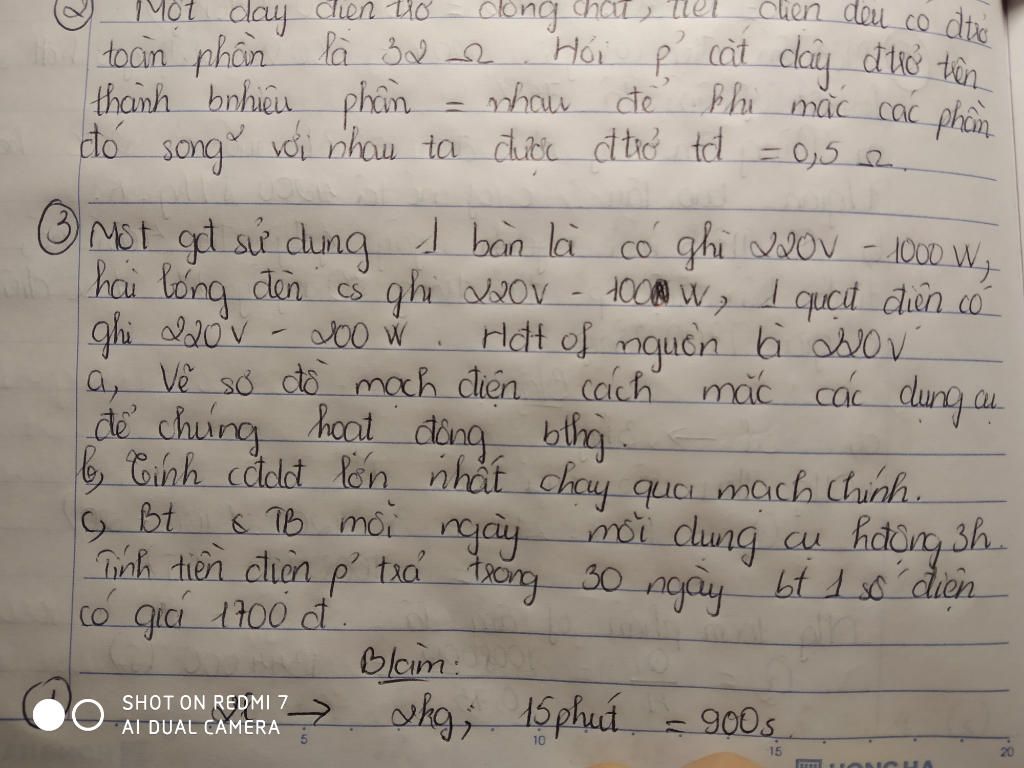 ② Một dây điện trở đồng chất, tiết diện đều có đtrở
toàn phần là 32 Ω. Hỏi p' cắt dây đtrở trên
thành bnhiêu phần = nhau để khi mắc các phần
đó song² với nhau ta được đtrở tđ = 0,5 Ω.
③ Một gđ sử dụng 1 bàn là có ghi 220V - 1000W,
hai bóng đèn cs ghi 220V - 100W, 1 quạt điện có
ghi 220V - 200W. Hđt of nguồn là 220V
a, Vẽ sơ đồ mạch điện cách mắc các dụng cụ
để chúng hoạt động bthg.
b, Tính cđdđ lớn nhất chạy qua mạch chính.
c, Bt TB mỗi ngày mỗi dụng cụ hđộng 3h.
Tính tiền điện p' trả trong 30 ngày bt 1 số điện
có giá 1700 đ.
Blàm:
① 2l → 2kg; 15 phút = 900s
SHOT ON REDMI 7
AI DUAL CAMERA
5 10 15 20
HONG HA